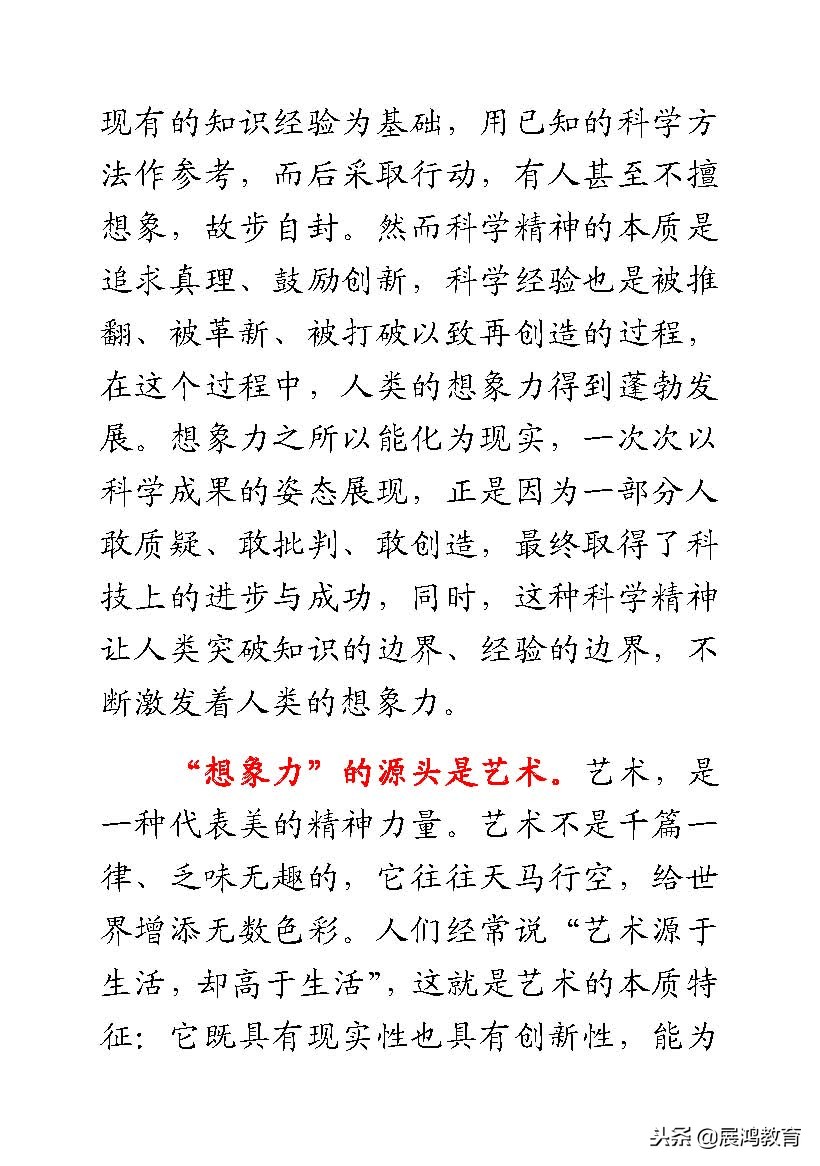 现有的知识经验为基础，用已知的科学方
法作参考，而后采取行动，有人甚至不擅
想象，故步自封。然而科学精神的本质是
追求真理、鼓励创新，科学经验也是被推
翻、被革新、被打破以致再创造的过程，
在这个过程中，人类的想象力得到蓬勃发
展。想象力之所以能化为现实，一次次以
科学成果的姿态展现，正是因为一部分人
敢质疑、敢批判、敢创造，最终取得了科
技上的进步与成功，同时，这种科学精神
让人类突破知识的边界、经验的边界，不
断激发着人类的想象力。
“想象力”的源头是艺术。艺术，是
一种代表美的精神力量。艺术不是千篇一
律、乏味无趣的，它往往天马行空，给世
界增添无数色彩。人们经常说“艺术源于
生活，却高于生活”，这就是艺术的本质特
征：它既具有现实性也具有创新性，能为
头条@展鸿教育